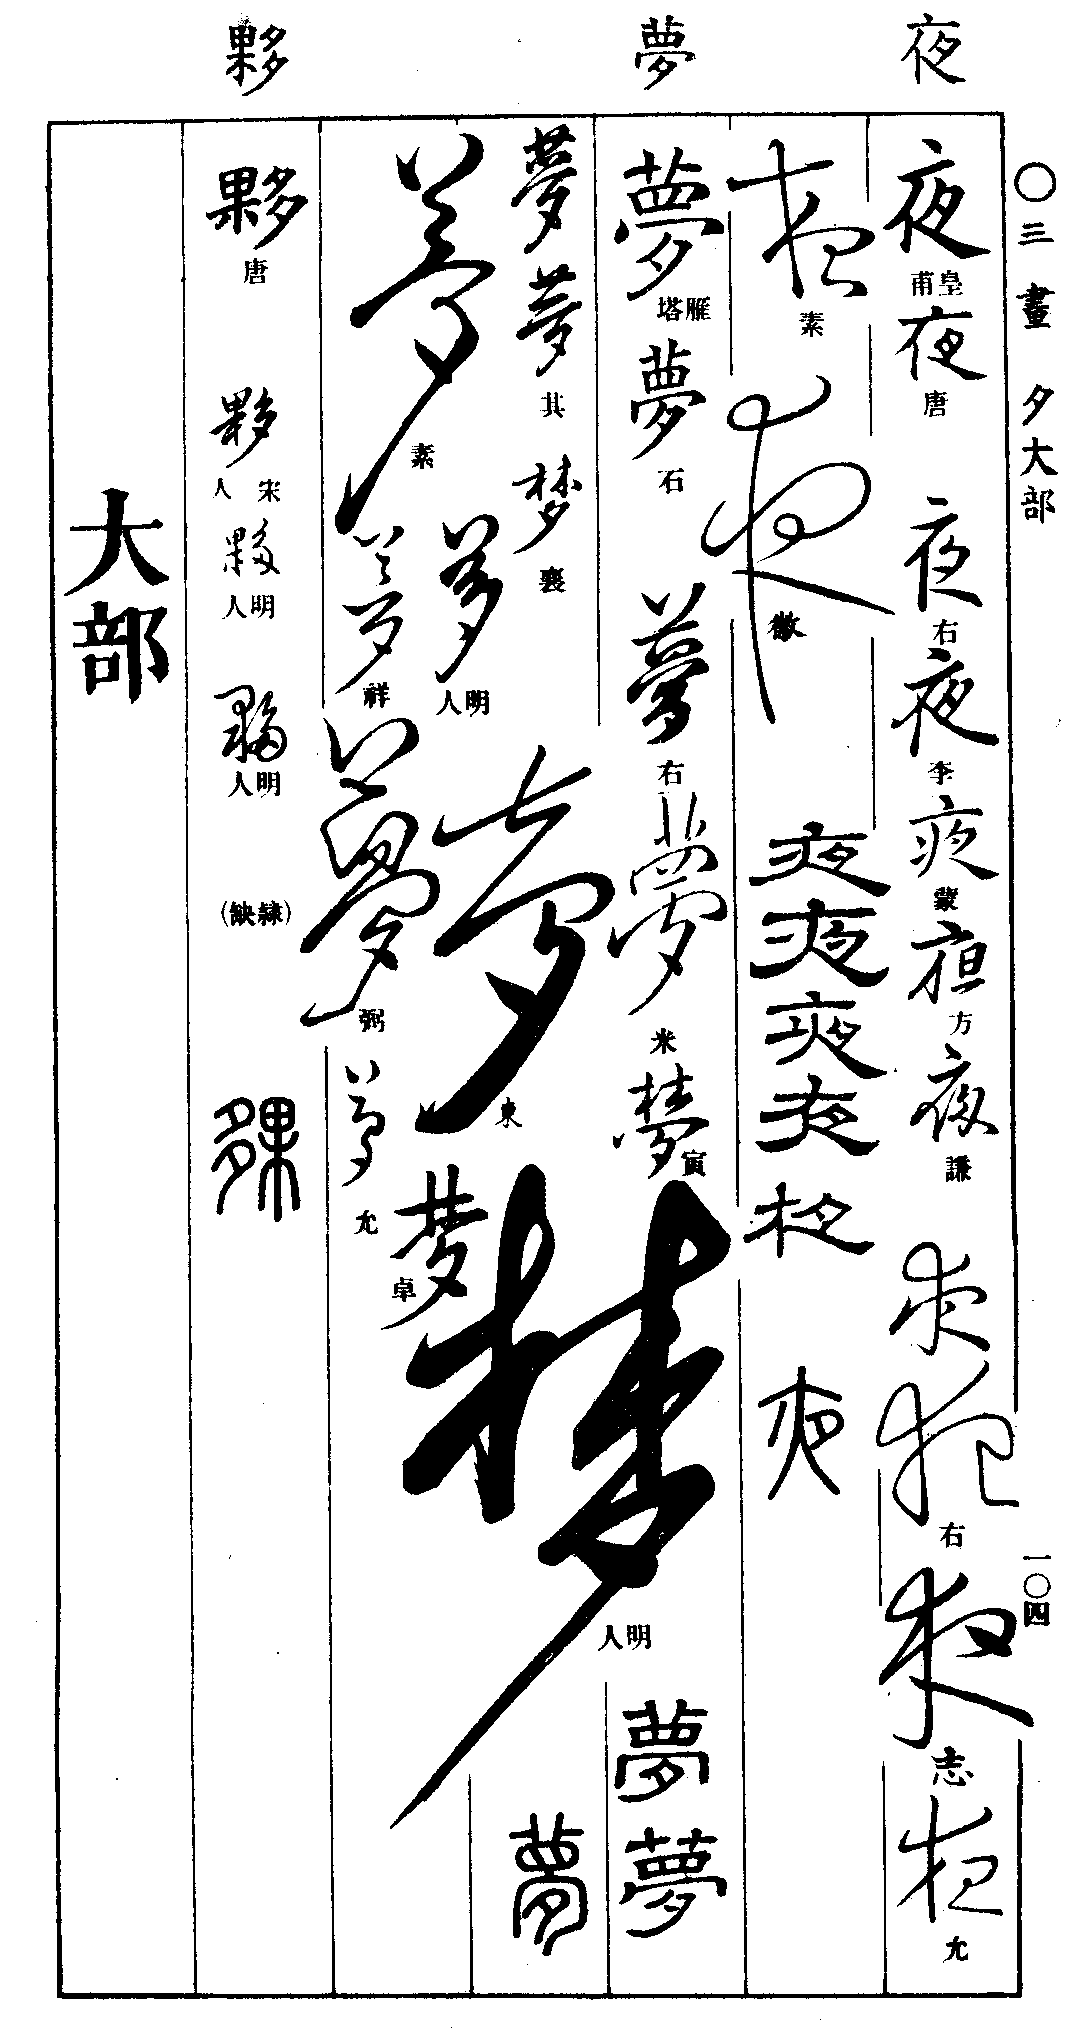 夜 夢 夥
〇三畫 夕大部 一〇四
夜 皇甫
夜 唐
夜 右
夜 李
夜 蒙
夜 方
夜 謙
夜
夜 右
夜 志
夜 允
夜 素
夜 徽
夜
夜
夜
夜
夜
夜
夢 雁塔
夢 石
夢 右
夢 米
夢 寅
夢
夢
夢 其
夢 襄
夢 明人
夢 東
夢 明人
夢
夢 素
夢 祥
夢 弼
夢 允
夢 卓
夥 唐
夥 宋人
夥 明人
夥 明人
(隸缺)
夥
大部